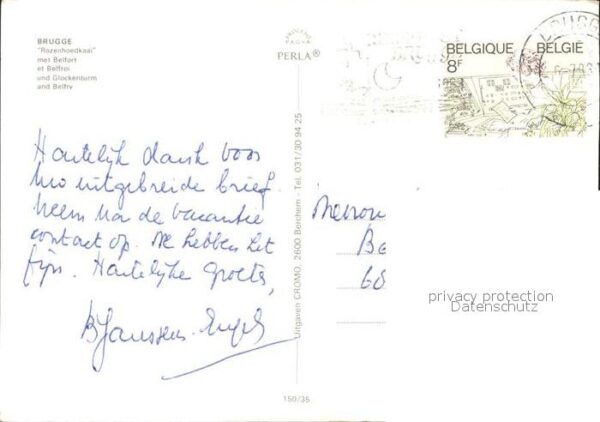 BRUGGE
"Rozenhoedkaai"
met Belfort
et Beffroi
und Glockenturm
and Belfry
PERLA®
BELGIQUE BELGIË
8F
Hartelijk dank voor
uw uitgebreide brief.
Neem na de vacantie
contact op. We hebben het
fijn. Hartelijke groeten,
B Janssens-Engels
Uitgaven CROMO, 2600 Berchem - Tel. 031/30 94 25
Mevrou
Be
68
privacy protection
Datenschutz
150/35